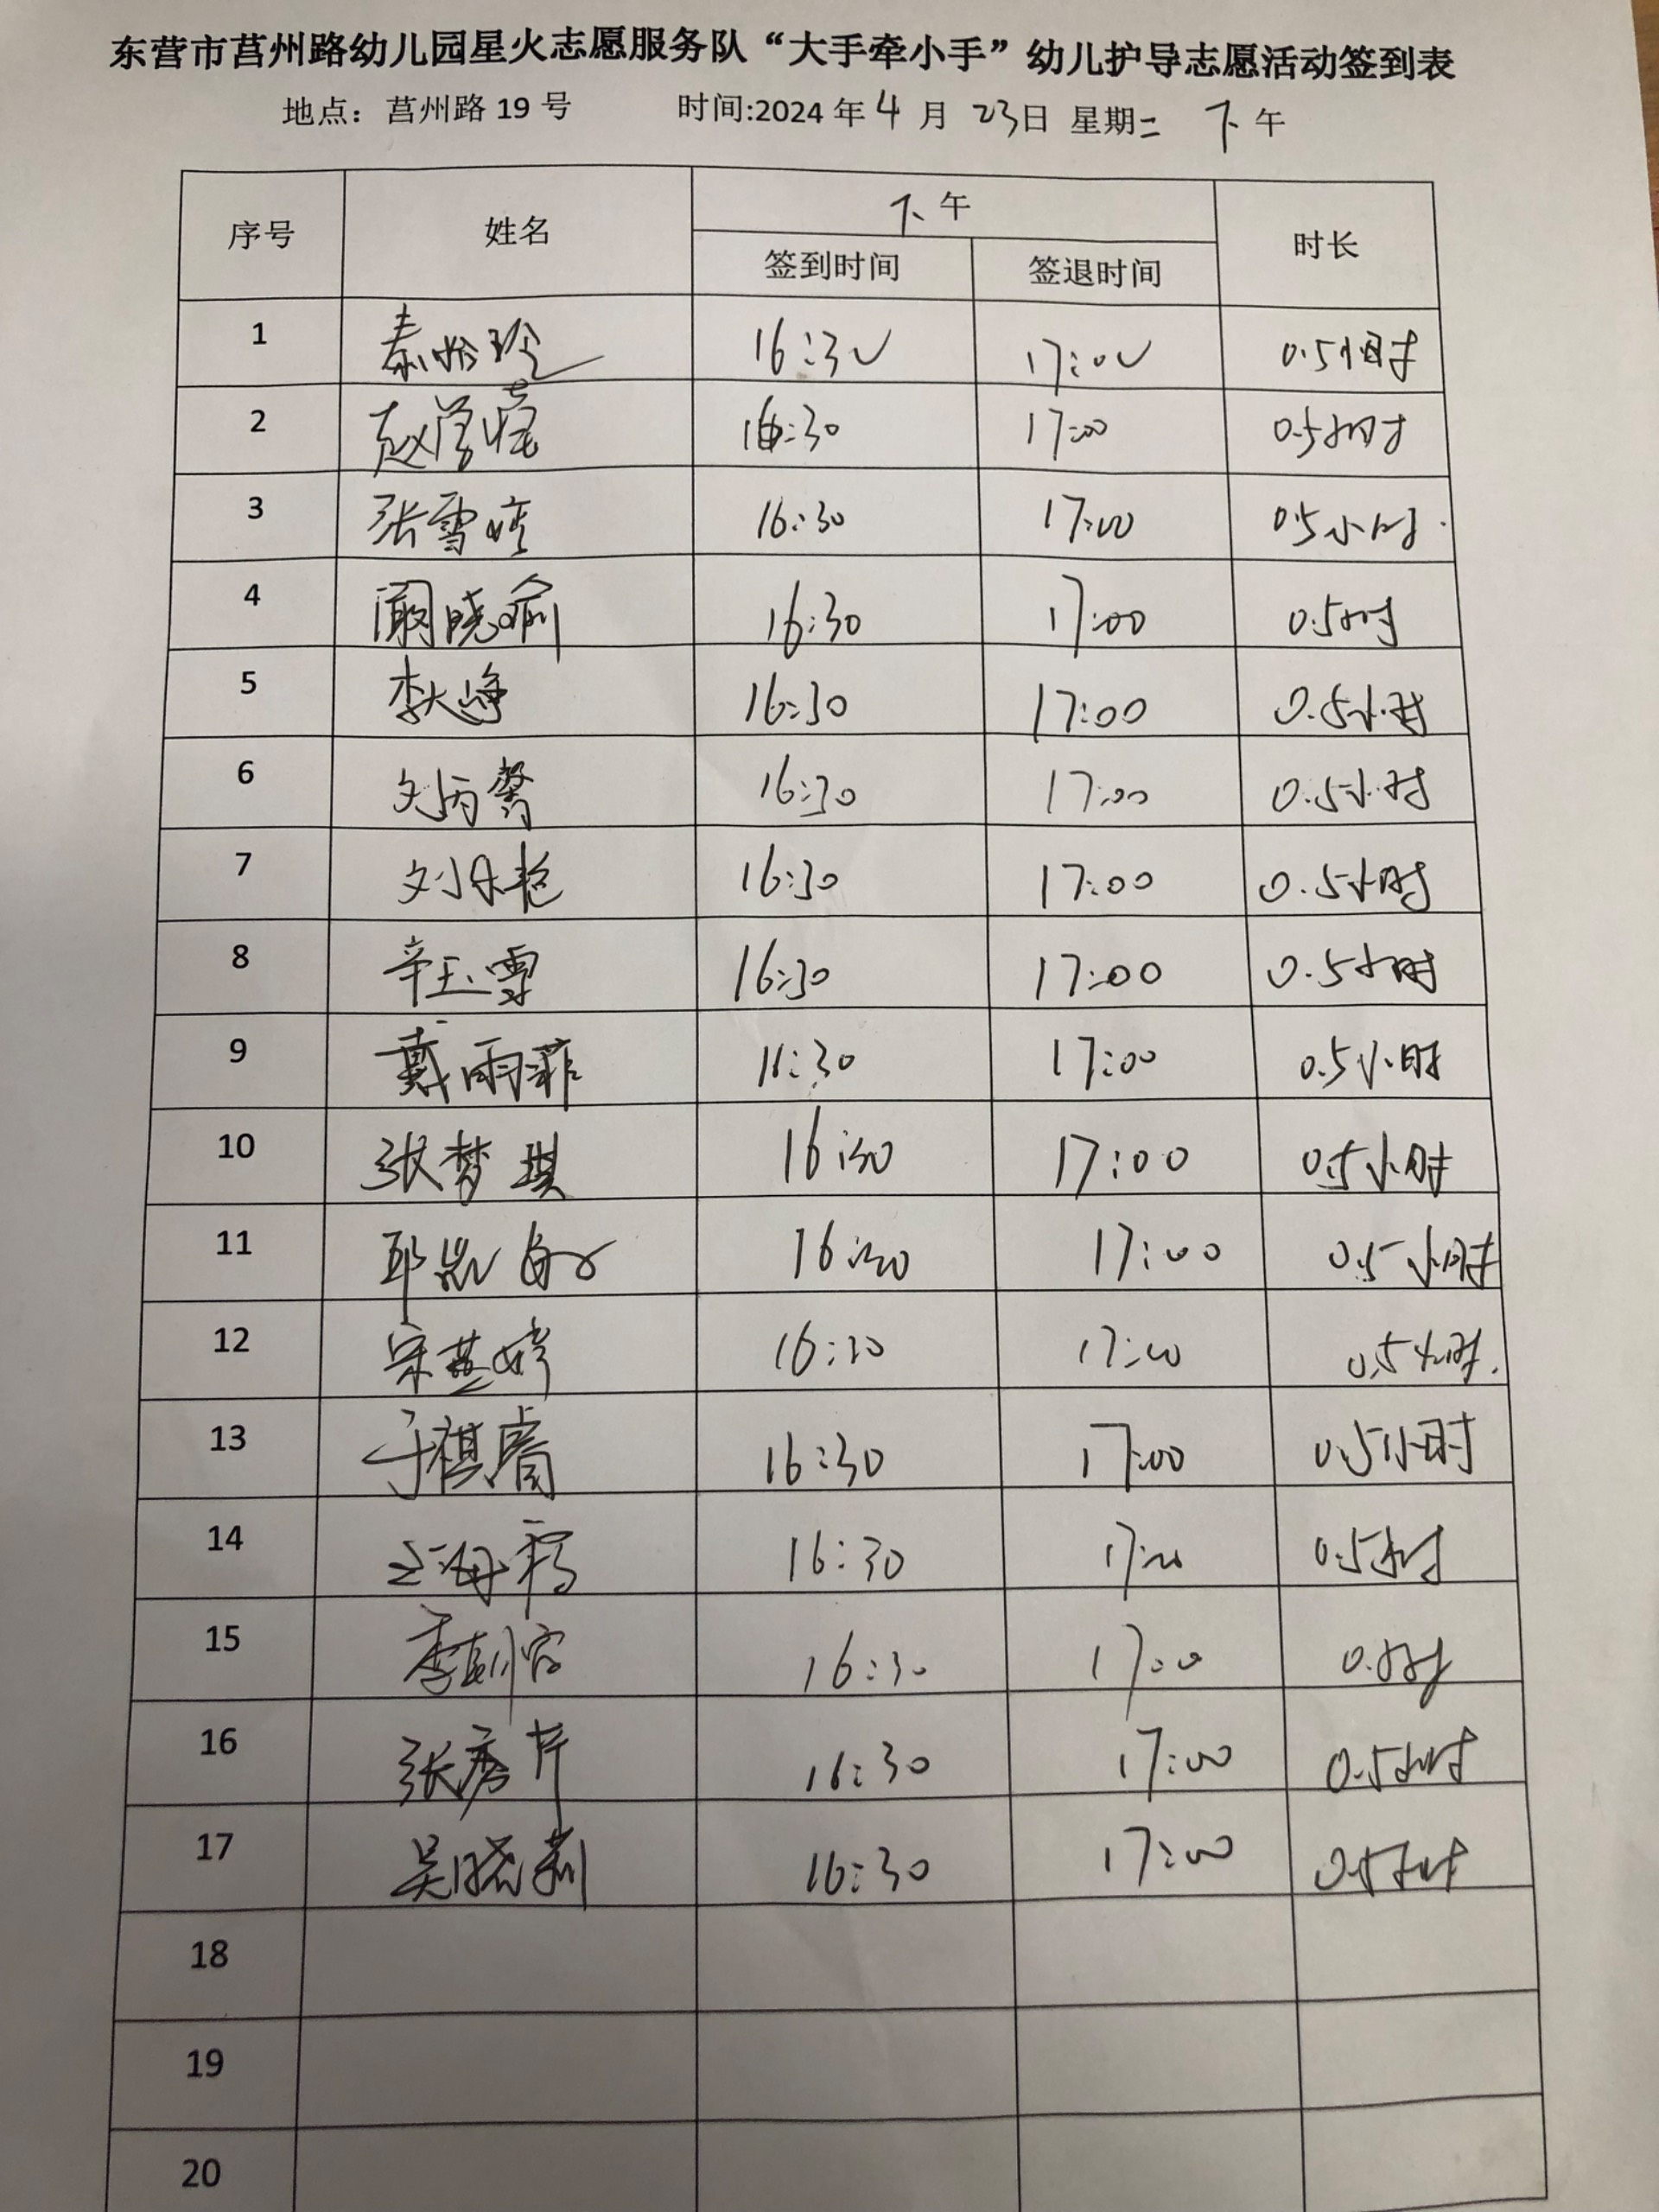 东营市莒州路幼儿园星火志愿服务队“大手牵小手”幼儿护导志愿活动签到表
地点：莒州路 19 号 时间:2024 年 4 月 23日 星期二 下午
序号 姓名 下午 时长
签到时间 签退时间
1 秦怡玲 16:30 17:00 0.5小时
2 赵 16:30 17:00 0.5小时
3 张雪 16:30 17:00 0.5小时
4 阚晓瑜 16:30 17:00 0.5小时
5 李 16:30 17:00 0.5小时
6 刘丙馨 16:30 17:00 0.5小时
7 刘丹艳 16:30 17:00 0.5小时
8 辛玉雪 16:30 17:00 0.5小时
9 戴雨菲 16:30 17:00 0.5小时
10 张梦琪 16:30 17:00 0.5小时
11 邱凯 16:30 17:00 0.5小时
12 宋燕婷 16:30 17:00 0.5小时
13 于祺睿 16:30 17:00 0.5小时
14 16:30 17:00 0.5小时
15 李 16:30 17:00 0.5小时
16 张彦芹 16:30 17:00 0.5小时
17 吴晓莉 16:30 17:00 0.5小时
18
19
20